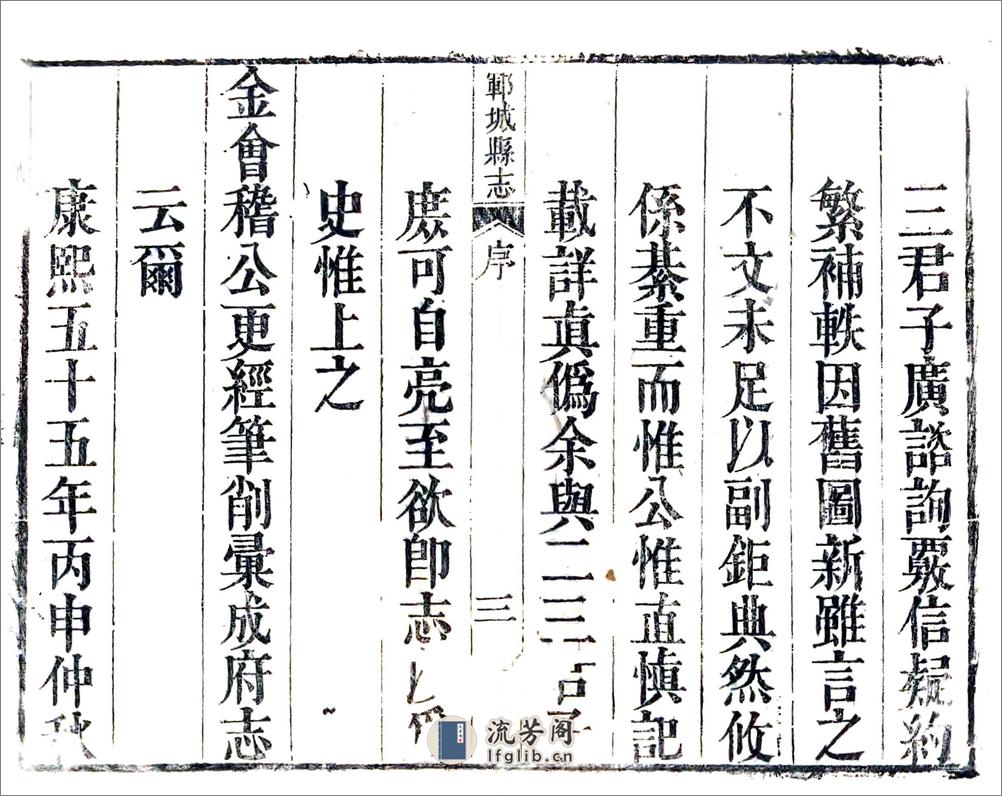 三君子廣諮詢覈信疑約
繁補軼因舊圖新雖言之
不文未足以副鉅典然攸
係綦重而惟公惟直慎記
載詳眞僞余與二三君子
鄆城縣志 序 三
庶可自亮至欲卽志
史惟上之
金會稽公更經筆削彙成府志
云爾
康熙五十五年丙申仲秋
流芳阁
lfglib.cn